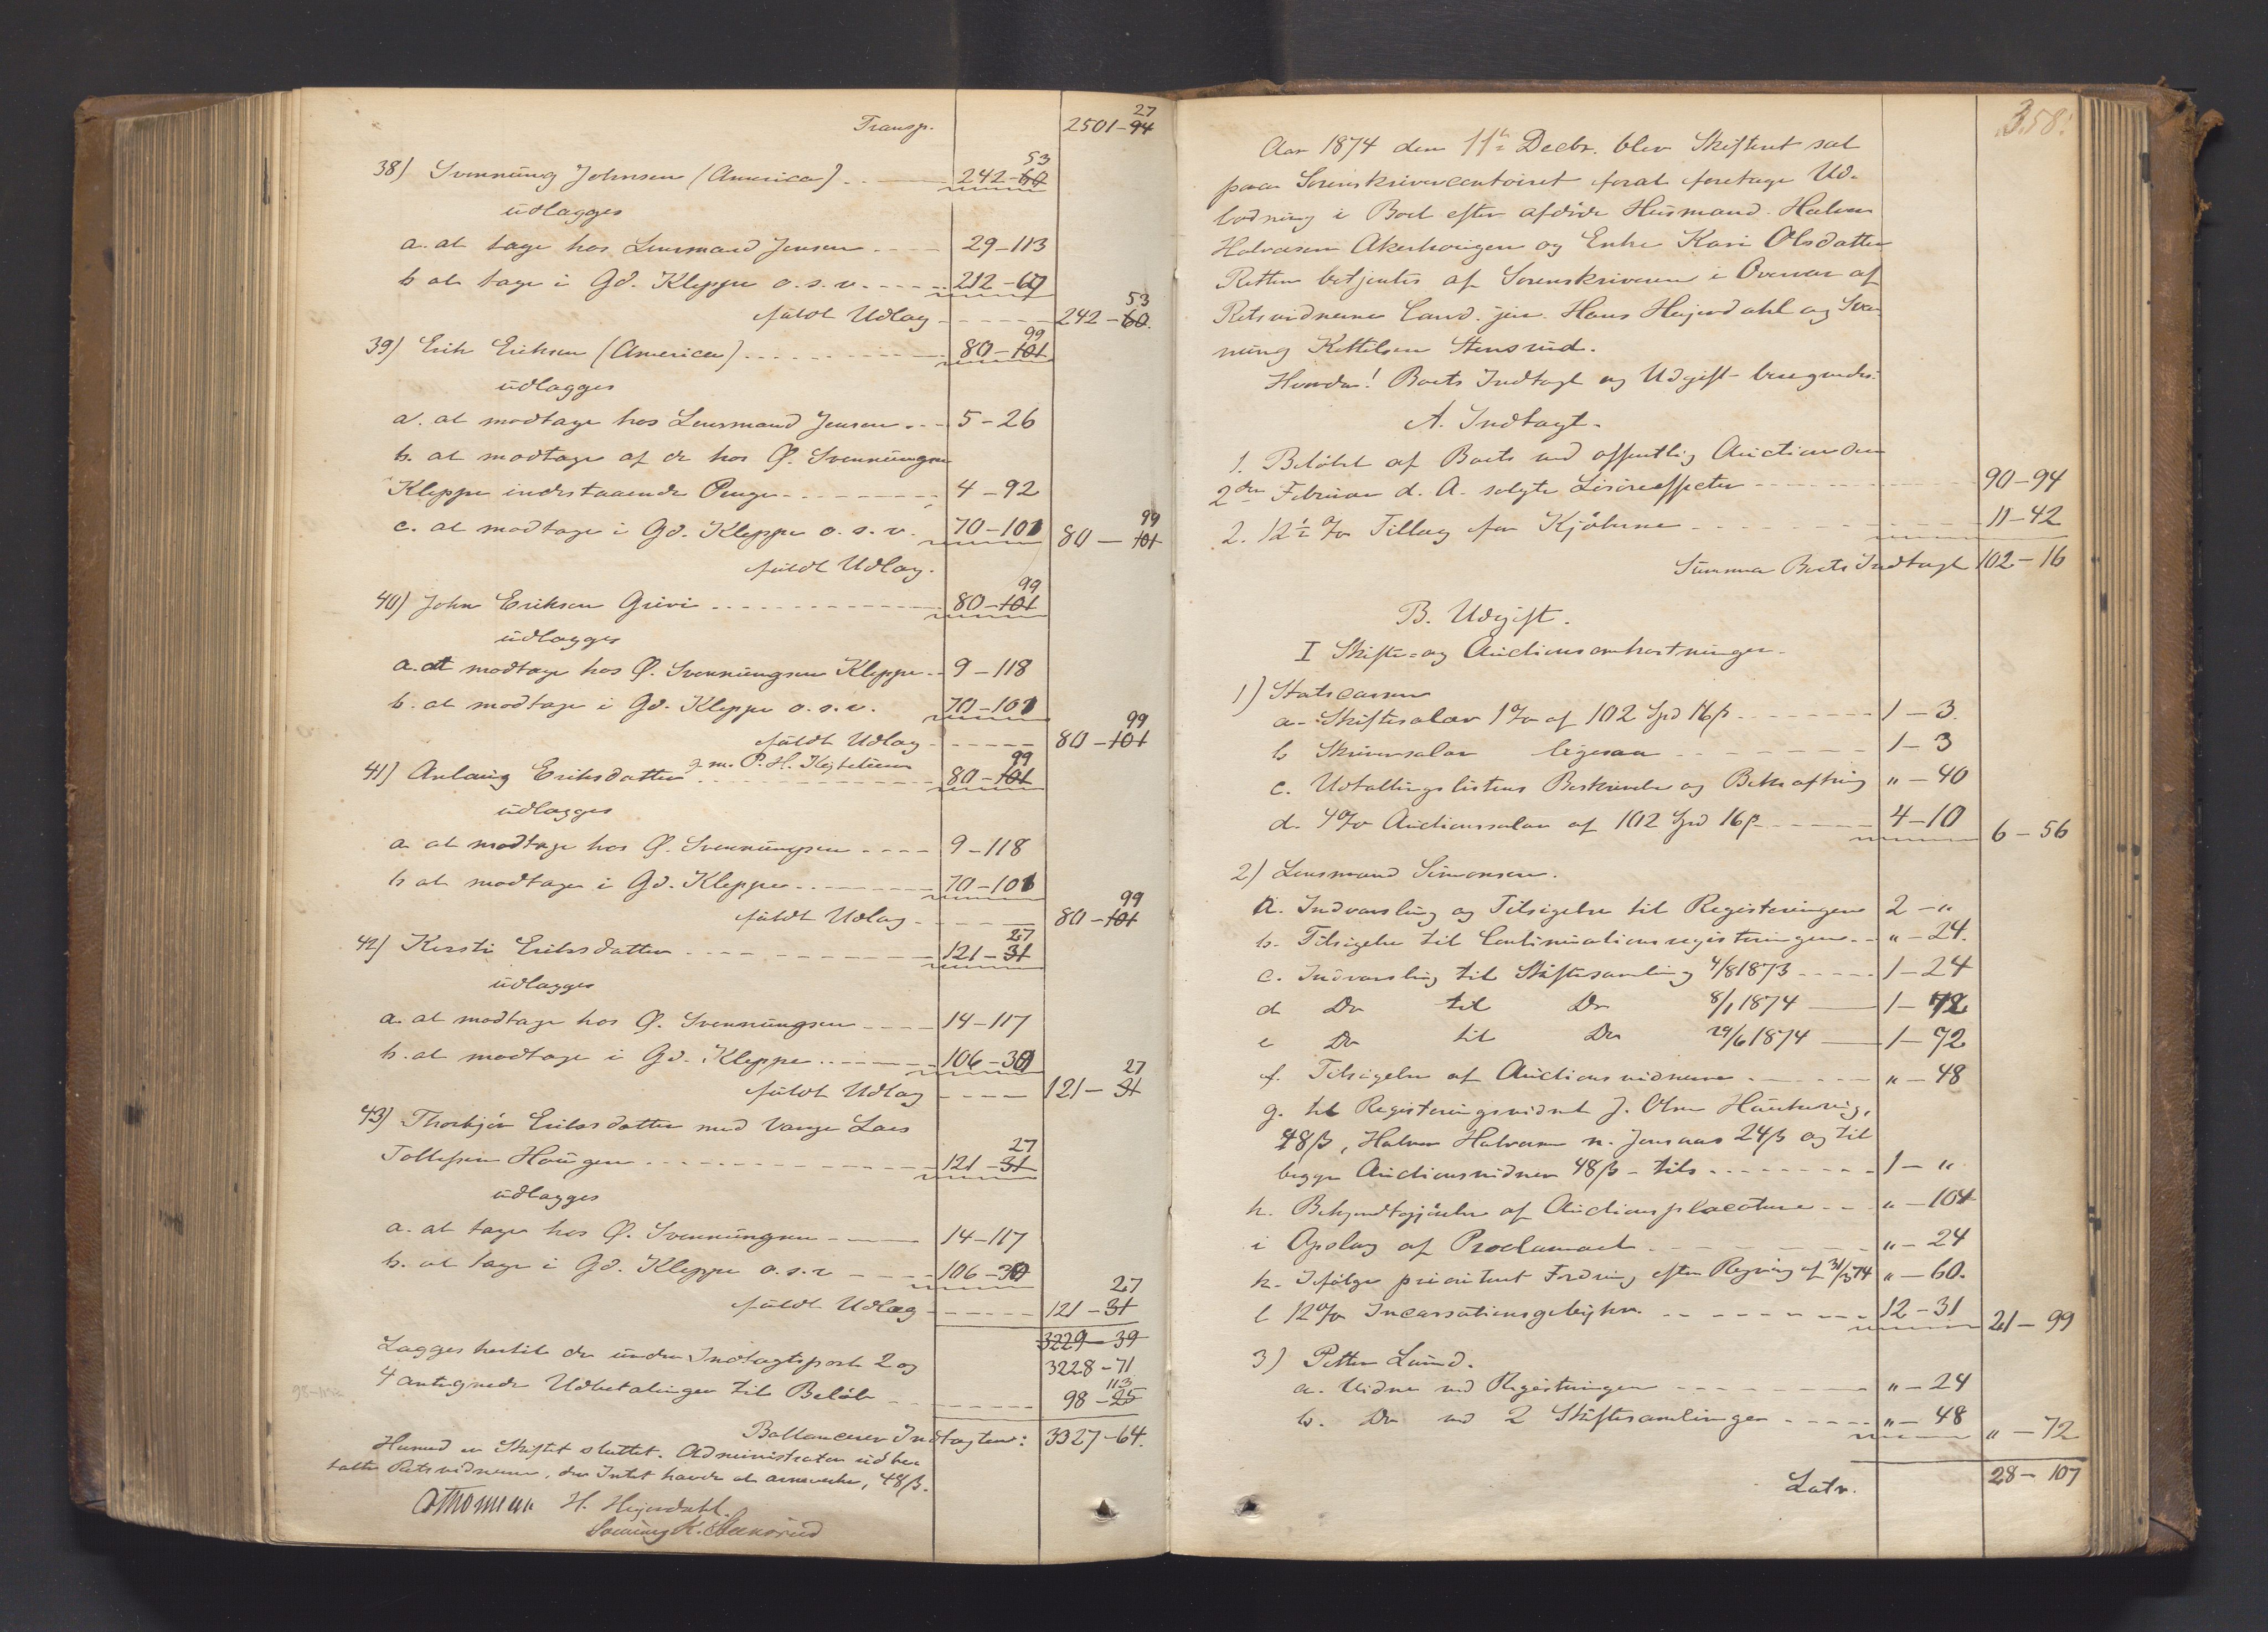 Transp. 2501-94 27
38) Svennüng Johnsen (America) 242-60 53
üdlægges
a. at tage hos Lensmand Jensen 29-113
b. at tage i Gd. Kleppe o.s.v. 212-67
füldt Udlæg 242-60. 53
39) Erik Eriksen (America) 80-101 99
üdlægges
a. at modtage hos Lensmand Jensen 5-26
b. at modtage af de hos Ø. Svennüngsen
Kleppe indestaaende Penge 4-92
c. at modtage i Gd. Kleppe o.s.v. 70-101 80-101 99
füldt Udlæg.
40) John Eriksen Grivi 80-101 99
üdlægges
a. at modtage hos Ø. Svennüngsen Kleppe 9-118
b. at modtage i Gd. Kleppe o.s.v. 70-101
füldt Udlæg 80-101 99
41) Anlaug Eriksdatter g. m. P. H. 80-101 99
üdlægges
a. at modtage hos Ø. Svennüngsen 9-118
b. at modtage i Gd. Kleppe 70-101
füldt Udlæg 80-101 99
42) Kersti Eriksdatter 121-31 27
üdlægges
a. at modtage hos Ø. Svennüngsen 14-117
b. at modtage i Gd. Kleppe 106-30
füldt Udlæg 121-31 27
43) Thorbjør Eriksdatter med Værge Lars
Tollefsen Haügen 121-31 27
üdlægges
a. at tage hos Ø. Svennüngsen 14-117
b. at tage i Gd. Kleppe o.s.v 106-30
füldt Udlæg 121-31 27
3229-39
Lægges hertil de ünder Indtægtspost 2 og 3228-71
4 antegnede Udbetalinger til Beløb 98-25 113
Ballancerer Indtægten: 3327-64.
Hermed er Skiftet slüttet. Administrator üdbe-
talte Retsvidnerne, der Intet havde at anmærke, 48 ß.
H. Hejerdahl.
Svennüng K. Stensrüd
358.
Aar 1874 den 11te Decbr. blev Skifteret sat
paa Sorenskrivercontoiret forat foretage Ud-
lodning i Boet efter afdøde Hüsmand Halvor
Halvorsen Akerhaugen og Enke Kari Olsdatter
Retten betjentes af Sorenskriveren i Overvær af
Retsvidnerne Cand. jür. Hans Hejerdahl og Sven-
nüng Kettilsen Stensrüd.
Hvorda! Boets Indtægt og Udgift beregnedes:
A. Indtægt.
1. Beløbet af Boets ved offentlig Aüction den
2den Februar d. A. solgte Løsøreeffecter 90-94
2. 12½ % Tillæg for Kjøberne 11-42
Summa Boets Indtægt 102-16
B. Udgift.
I Skifte- og Aüctionsomkostninger.
1) Statscassen
a. Skiftesalær 1% af 102 Spd 16 ß 1-3.
b Skriversalær ligesaa 1-3
c. Udtallingslistens Beskrivelse og Bekræftning " - 40
d. 4% Aüctionssalær af 102 Spd 16 ß 4-10 6-56
2) Lensmand Simonsen.
a. Indvarsling og Tilsigelse til Registreringen 2-"
b. Tilsigelse til Continüationsregistreringen " - 24.
c. Indvarsling til Skiftesamling 4/8 1873 1-24
d Do til Do 8/1 1874 1-72
e Do til Do 29/6 1874 1-72
f. Tilsigelse af Aüctionsvidnerne " - 48
g. til Registreringsvidnet J. Olsen
48 ß, Halvor Halvorsen n. Jonsaas 24 ß og til
begge Aüctionsvidner 48 ß - tils 1-"
h. Bekjendtgjørelse af Aüctionsplacatene " - 104
i Opslag af Proclamaet " - 24
k. Ifølge prioritert Fordring efter Regning af 31/3 74 " - 60.
l 12% Incassationsgebyhr 12-31 21-99
3) Petter Lünd.
a. Vidne ved Registreringen " - 24
b. Do ved 2 Skiftesamlinger " - 48 " - 72
Latr. 28-107